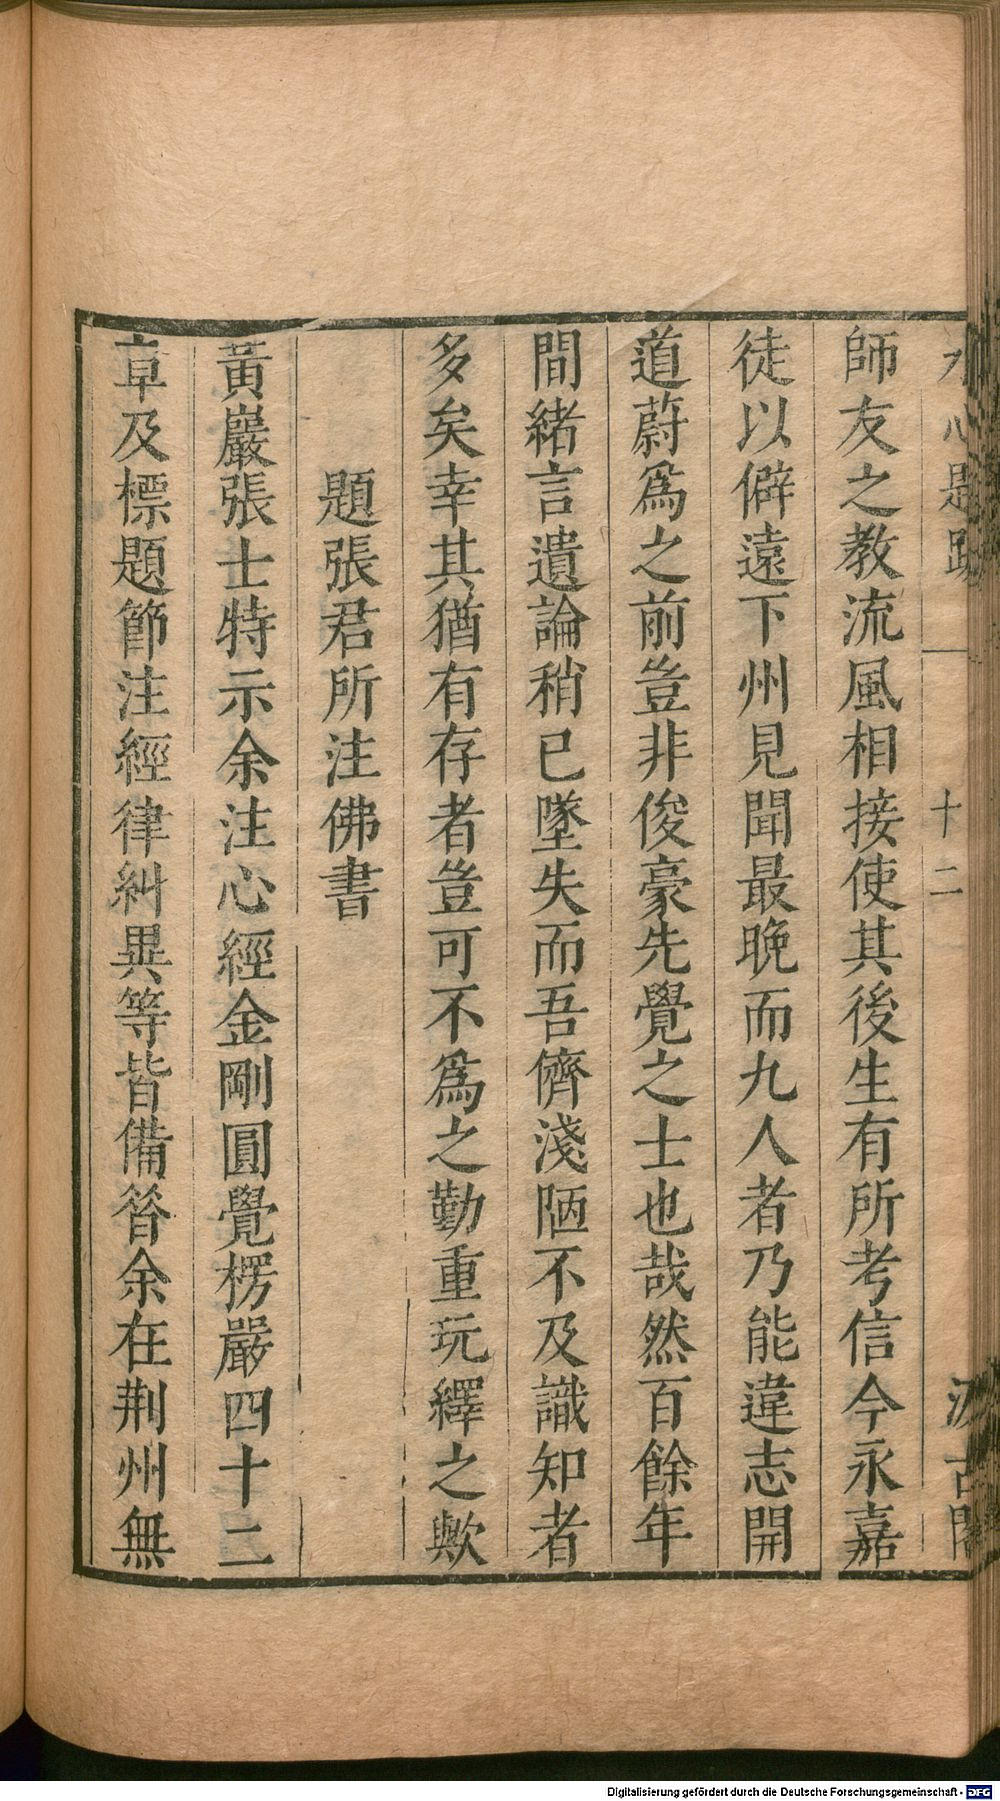 水心題跋 十二 汲古閣
師友之教流風相接使其後生有所考信今永嘉
徒以僻遠下州見聞最晚而九人者乃能違志開
道蔚爲之前豈非俊豪先覺之士也哉然百餘年
間緒言遺論稍已墜失而吾儕淺陋不及識知者
多矣幸其猶有存者豈可不爲之勤重玩繹之歟
題張君所注佛書
黃巖張士特示余注心經金剛圓覺楞嚴四十二
章及標題節注經律糾異等皆備昝余在荆州無
Digitalisierung gefördert durch die Deutsche Forschungsgemeinschaft - DFG